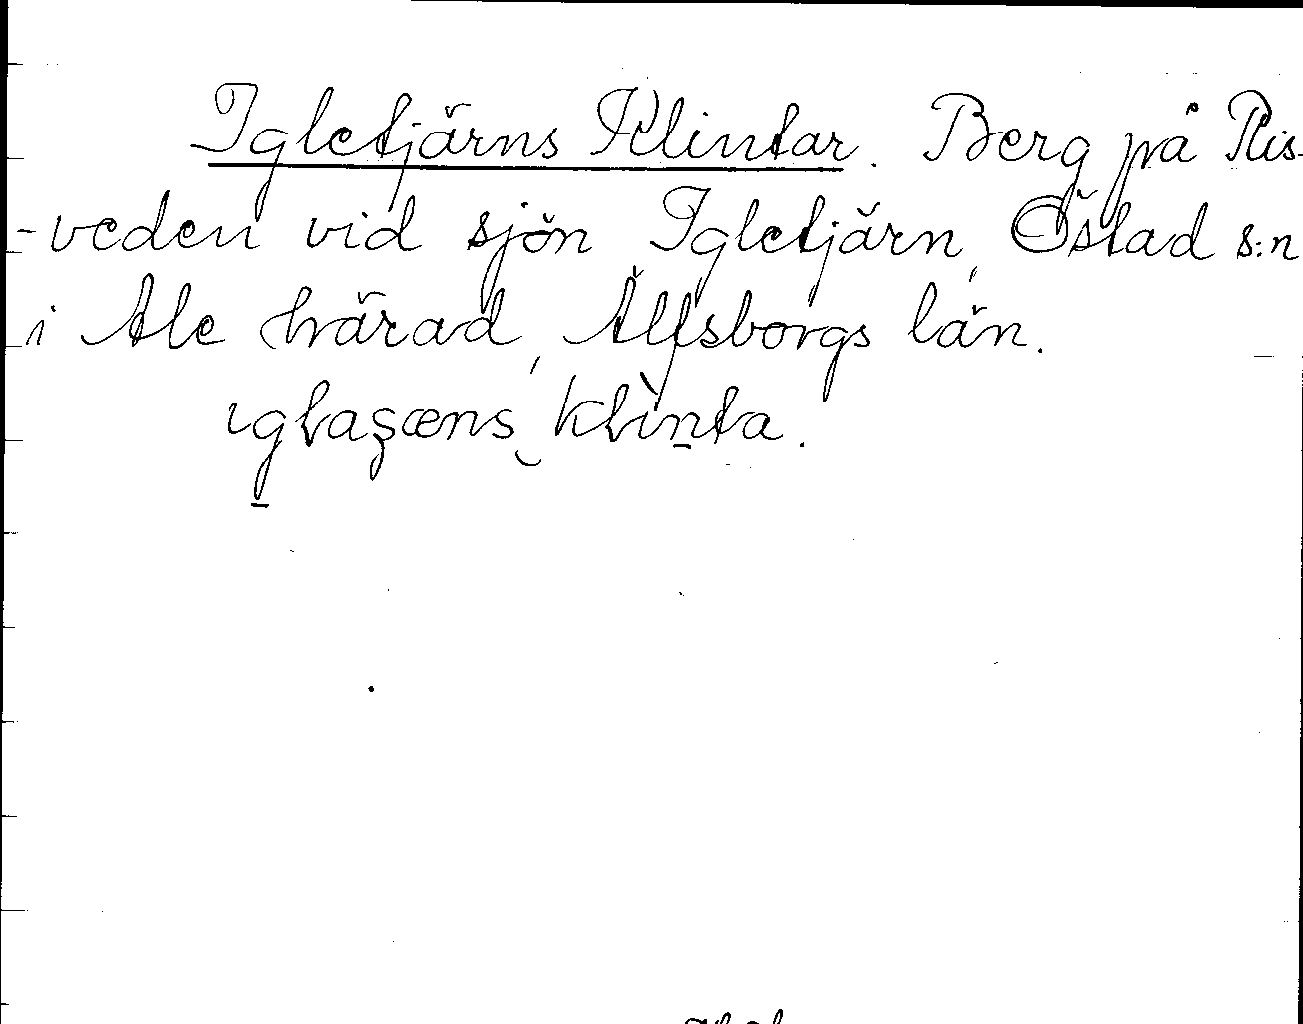 Igletjärns Klintar. Berg på Ris-
-veden vid sjön Igletjärn, Östad s:n
i Ale härad, Älfsborgs län.
ıglaşœns klìnta.